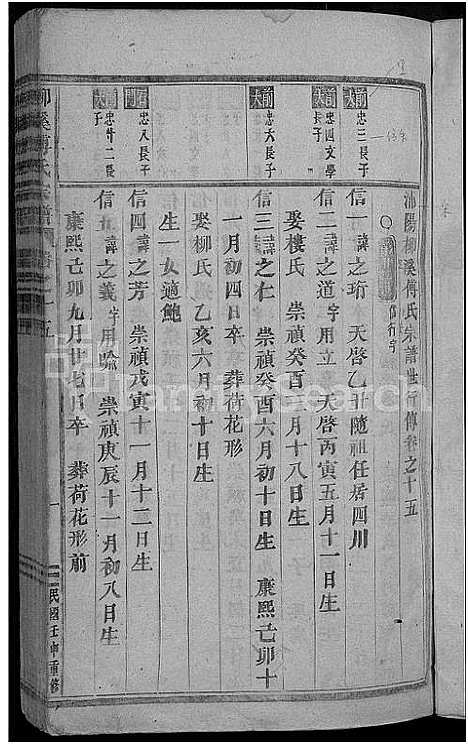 沛陽柳溪傅氏宗譜世行傳卷之十五
信行字
前大
忠三長子
信一諱之珩 天啓乙丑隨祖任居四川
忠四文學
長子
信二諱之道字用立 天啓丙寅五月十一日生
娶樓氏 崇禎癸酉三月十八日生
前大
忠六長子
信三諱之仁 崇禎癸酉六月初十日生 康熙己卯十
一月初四日卒 葬荷花形
娶柳氏 乙亥六月初十日生
生一女適鮑
忠八長子
信四諱之芳 崇禎戊寅十一月十三日生
忠廿二長
信九諱之義字用喻 崇禎庚辰十一月初八日生
康熙己卯九月廿七日卒 葬荷花形前
柳溪傅氏宗譜
卷之十五
一
民國壬申重修
FamilySearch